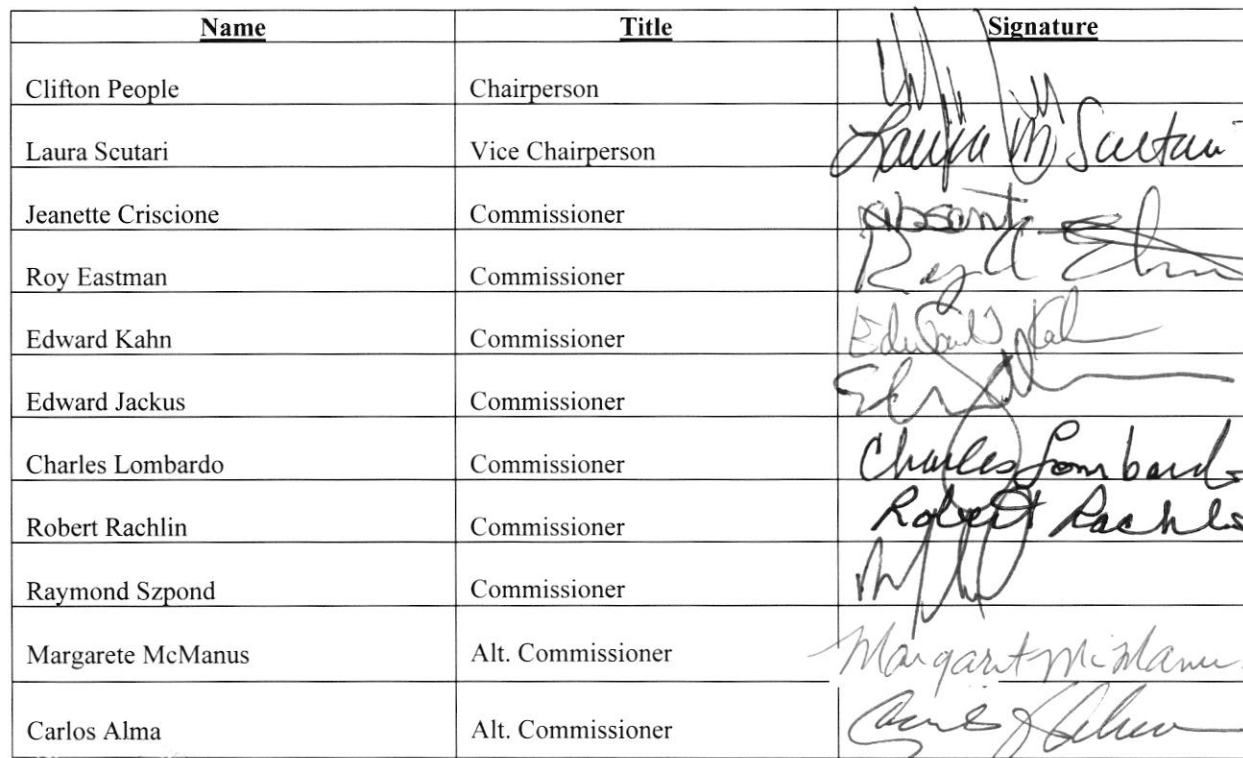 Name Title Signature
Clifton People Chairperson
Laura Scutari Vice Chairperson Laura M Scutari
Jeanette Criscione Commissioner absent
Roy Eastman Commissioner Roy
Edward Kahn Commissioner Edward Kahn
Edward Jackus Commissioner
Charles Lombardo Commissioner Charles Lombardo
Robert Rachlin Commissioner Robert Rachlin
Raymond Szpond Commissioner
Margarete McManus Alt. Commissioner Margaret McManus
Carlos Alma Alt. Commissioner